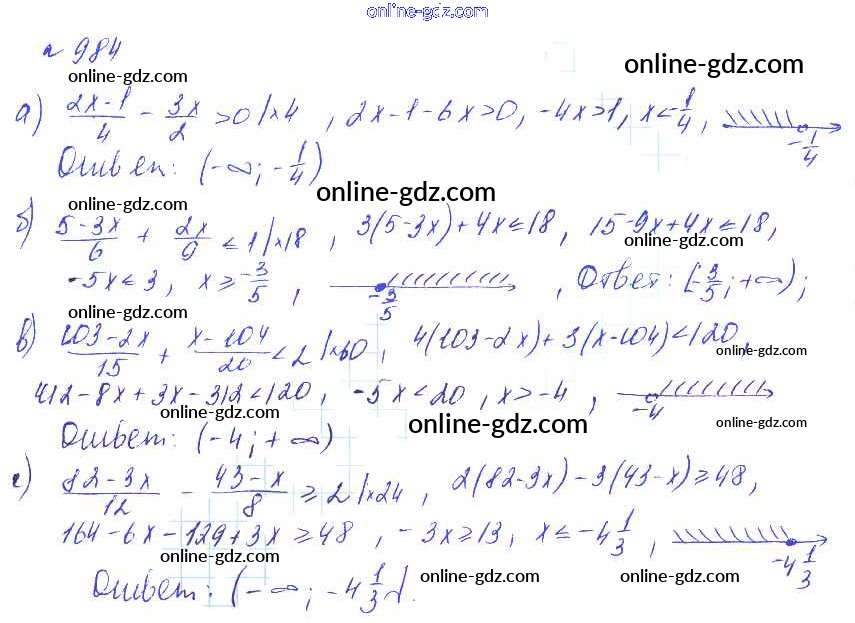 online-gdz.com
№ 984
online-gdz.com online-gdz.com
а) (2x-1)/4 - 3x/2 > 0 |×4, 2x-1-6x>0, -4x>1, x<-1/4, -1/4
Ответ: (-∞; -1/4)
online-gdz.com
online-gdz.com
б) (5-3x)/6 + 2x/9 ≤ 1 |×18, 3(5-3x)+4x≤18, 15-9x+4x≤18,
online-gdz.com
-5x≤3, x≥-3/5, -3/5, Ответ: [-3/5; +∞);
online-gdz.com online-gdz.com
в) (103-2x)/15 + (x-104)/20 < 2 |×60, 4(103-2x)+3(x-104)<120,
online-gdz.com
412-8x+3x-312<120, -5x<20, x>-4, -4
online-gdz.com online-gdz.com online-gdz.com
Ответ: (-4; +∞)
г) (82-3x)/12 - (43-x)/8 ≥ 2 |×24, 2(82-3x)-3(43-x)≥48,
164-6x-129+3x≥48, -3x≥13, x≤-4 1/3, -4 1/3
online-gdz.com
online-gdz.com online-gdz.com
Ответ: (-∞; -4 1/3].
online-gdz.com